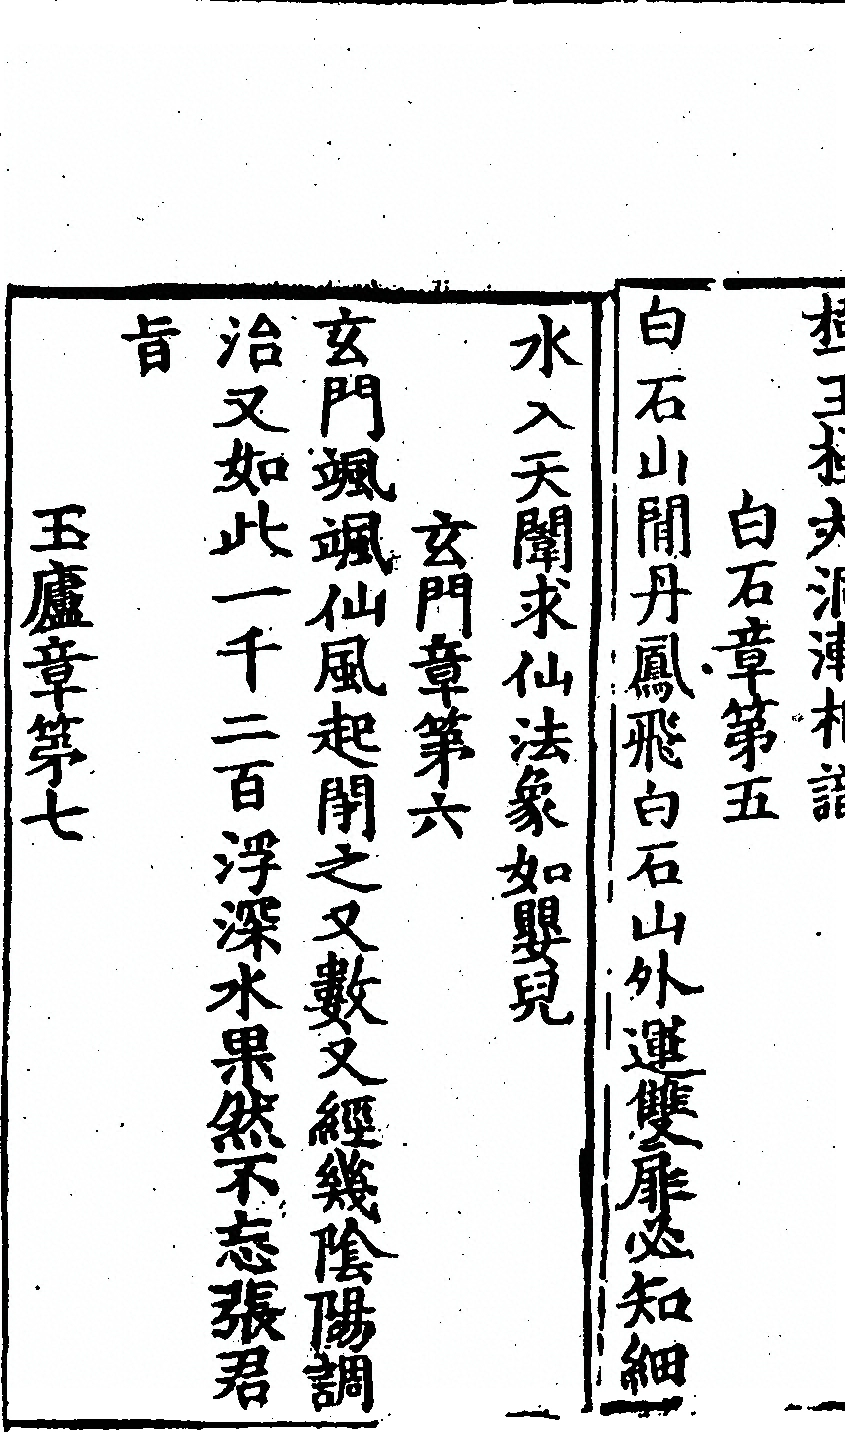 白石章第五
白石山閒丹鳳飛白石山外運雙扉必知細
水入天闈求仙法象如嬰兒
玄門章第六
玄門颯颯仙風起閉之又數又經幾陰陽調
治又如此一千二百浮深水果然不忘張君
旨
玉廬章第七